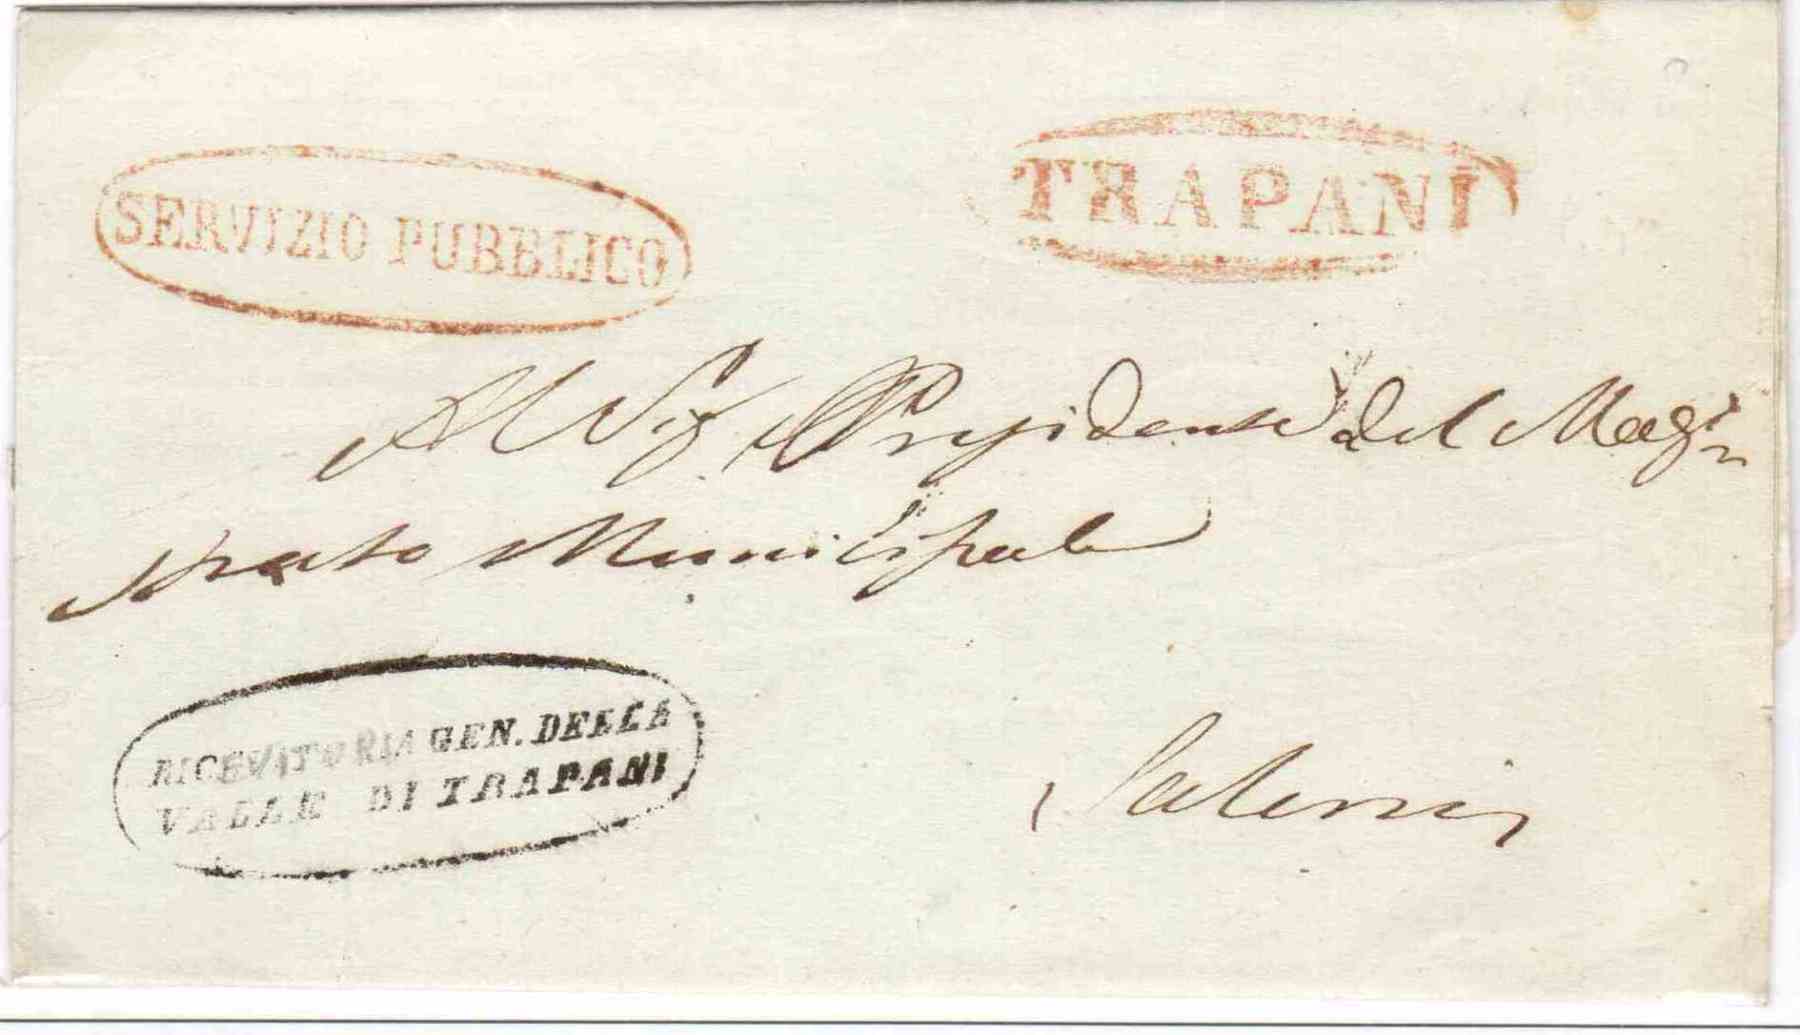 SERVIZIO PUBBLICO
TRAPANI
Al Sig. Presidente del Magi=
strato Municipale
RICEVITORIA GEN. DELLA
VALLE DI TRAPANI
Salemi